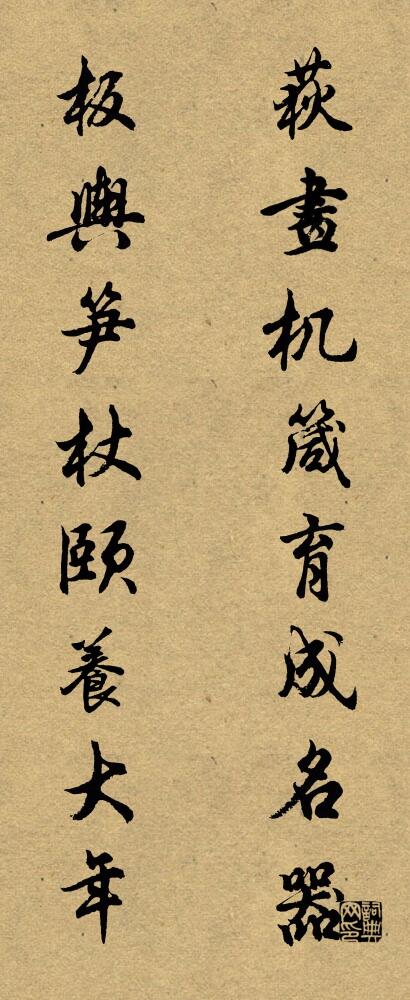 荻畫机箴育成名器
板輿笋杖頤養大年
詞典网印